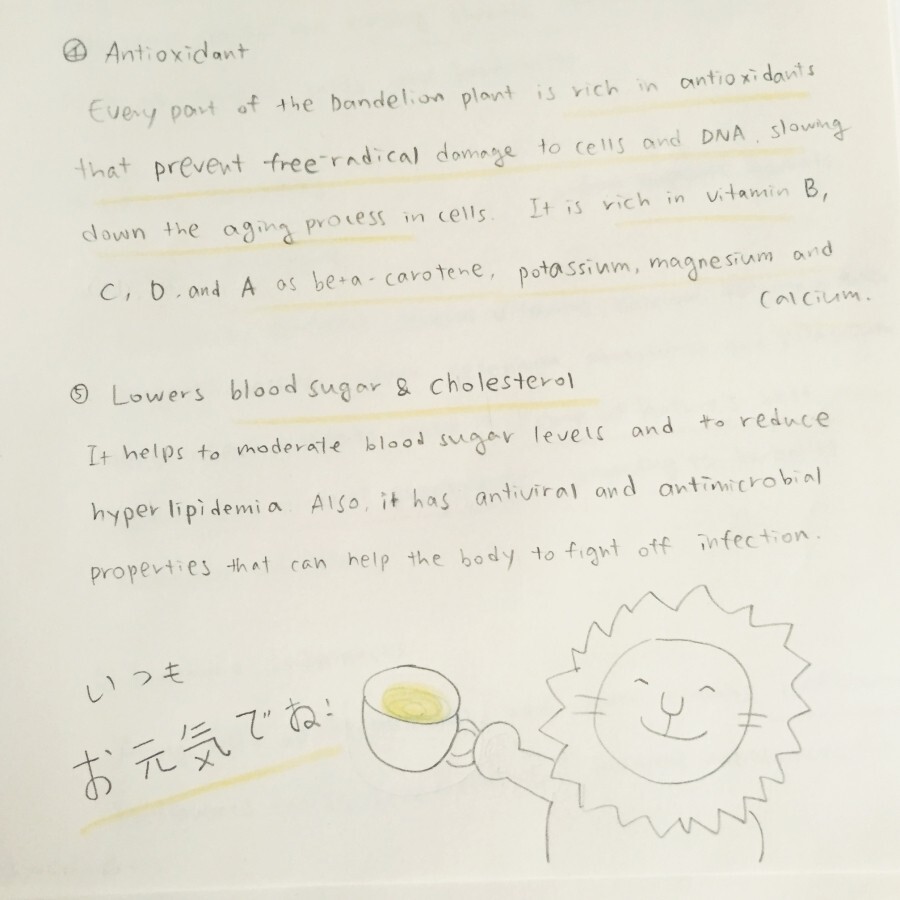 ④ Antioxidant
Every part of the Dandelion plant is rich in antioxidants
that prevent free-radical damage to cells and DNA, slowing
down the aging process in cells. It is rich in vitamin B,
C, D, and A as beta-carotene, potassium, magnesium and
calcium.
⑤ Lowers blood sugar & cholesterol
It helps to moderate blood sugar levels and to reduce
hyperlipidemia. Also, it has antiviral and antimicrobial
properties that can help the body to fight off infection.
いつも
お元気でね!